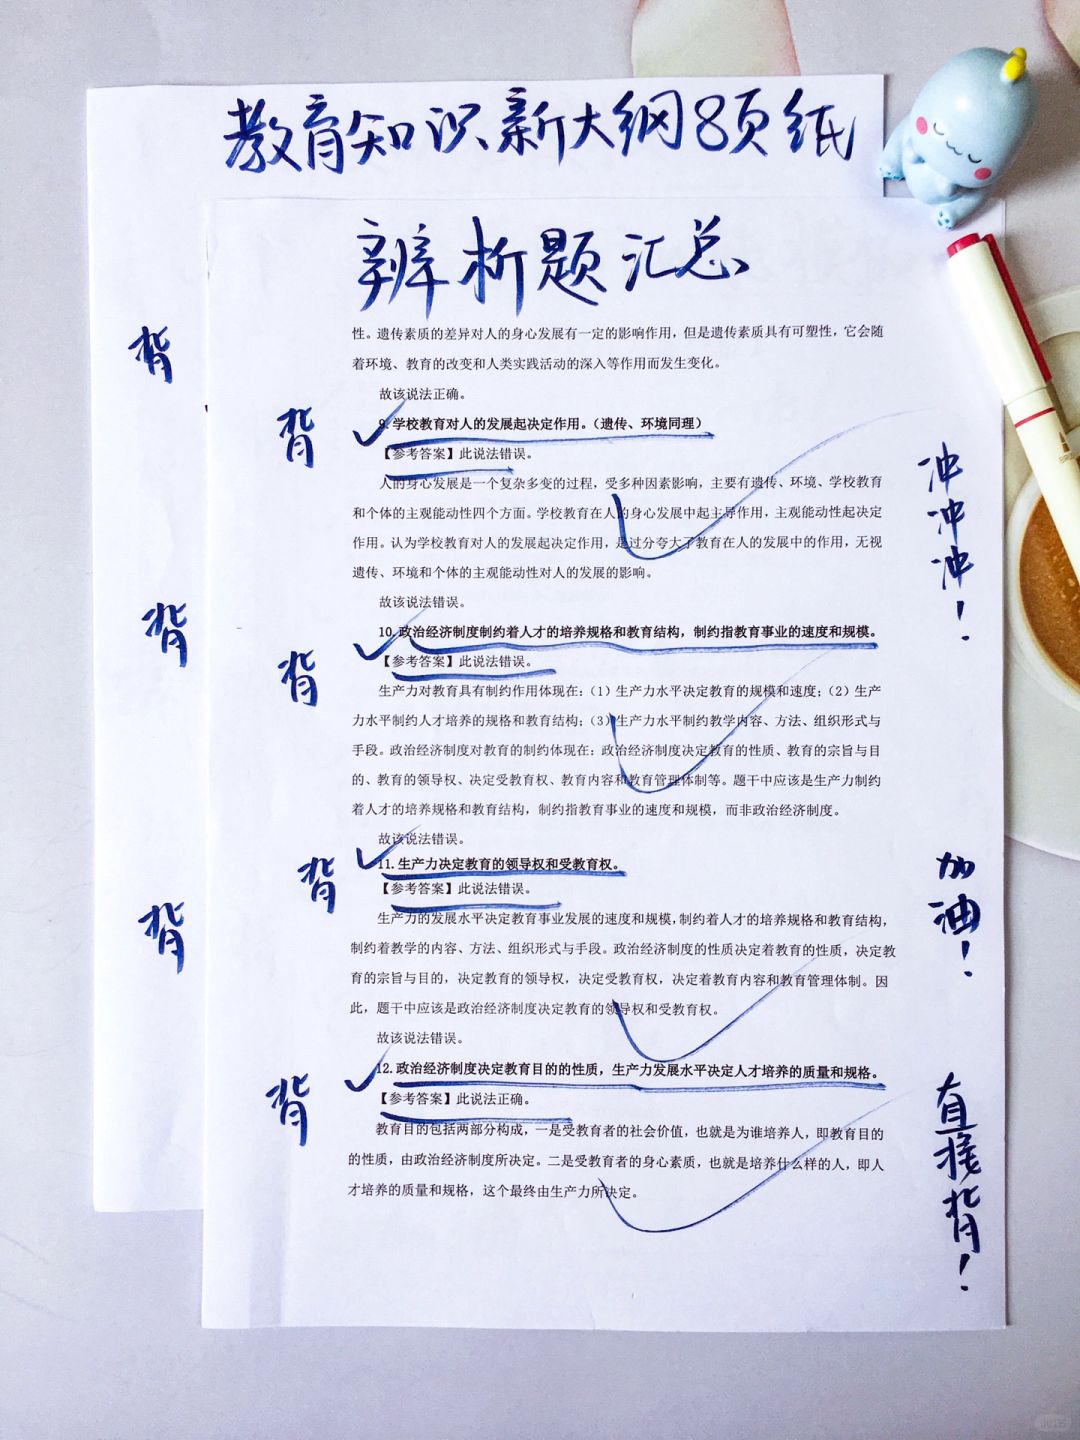 教育知识新大纲8页纸
辨析题汇总
性。遗传素质的差异对人的身心发展有一定的影响作用，但是遗传素质具有可塑性，它会随
着环境、教育的改变和人类实践活动的深入等作用而发生变化。
故该说法正确。
9.学校教育对人的发展起决定作用。（遗传、环境同理）
【参考答案】此说法错误。
人的身心发展是一个复杂多变的过程，受多种因素影响，主要有遗传、环境、学校教育
和个体的主观能动性四个方面。学校教育在人的身心发展中起主导作用，主观能动性起决定
作用。认为学校教育对人的发展起决定作用，是过分夸大了教育在人的发展中的作用，无视
遗传、环境和个体的主观能动性对人的发展的影响。
故该说法错误。
10.政治经济制度制约着人才的培养规格和教育结构，制约指教育事业的速度和规模。
【参考答案】此说法错误。
生产力对教育具有制约作用体现在：（1）生产力水平决定教育的规模和速度；（2）生产
力水平制约人才培养的规格和教育结构；（3）生产力水平制约教学内容、方法、组织形式与
手段。政治经济制度对教育的制约体现在：政治经济制度决定教育的性质、教育的宗旨与目
的、教育的领导权、决定受教育权、教育内容和教育管理体制等。题干中应该是生产力制约
着人才的培养规格和教育结构，制约指教育事业的速度和规模，而非政治经济制度。
故该说法错误。
11.生产力决定教育的领导权和受教育权。
【参考答案】此说法错误。
生产力的发展水平决定教育事业发展的速度和规模，制约着人才的培养规格和教育结构，
制约着教学的内容、方法、组织形式与手段。政治经济制度的性质决定着教育的性质，决定教
育的宗旨与目的，决定教育的领导权，决定受教育权，决定着教育内容和教育管理体制。因
此，题干中应该是政治经济制度决定教育的领导权和受教育权。
故该说法错误。
12.政治经济制度决定教育目的的性质，生产力发展水平决定人才培养的质量和规格。
【参考答案】此说法正确。
教育目的包括两部分构成，一是受教育者的社会价值，也就是为谁培养人，即教育目的
的性质，由政治经济制度所决定。二是受教育者的身心素质，也就是培养什么样的人，即人
才培养的质量和规格，这个最终由生产力所决定。
背
背
背
背
背
背
背
冲冲冲！
加油！
直接背！